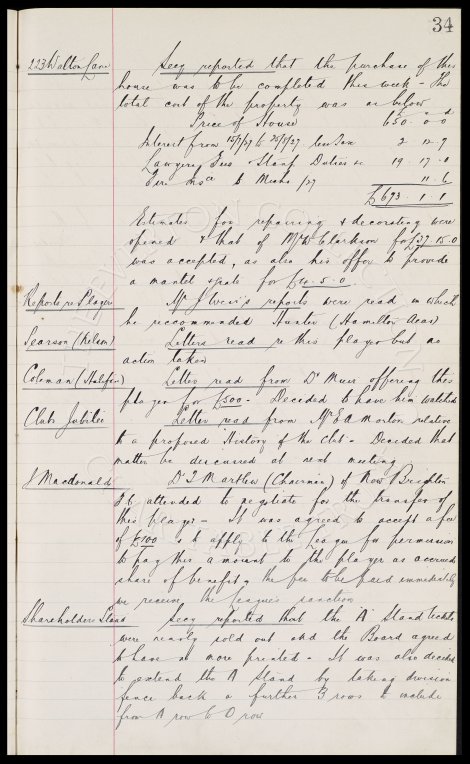 34
223 Walton Lane Secy reported that the purchase of this
house was to be completed this week - The
total cost of the property was as below
Price of House 650 . 0 . 0
Interest from 15/7/27 to 25/8/27 less Tax 2 . 12 . 9
Lawyers Fees & Stamp Duties &c 19 . 17 . 0
Fire Insce to Michs /27 11 . 6
£693 . 1 . 1
Estimates for repairing & decorating were
opened & that of Mr W Clarkson for £37.15.0
was accepted, as also his offer to provide
a mantel & grate for £4.5.0.
Reports re Players Mr J Weir's reports were read in which
he recommended Hunter (Hamilton Acas)
Pearson (Nelson) Letters read re this player but no
action taken
Coleman (Halifax) Letter read from Dr Muir offering this
player for £500 - Decided to have him watched
Clubs Jubilee Letter read from Mr E A Morton relative
to a proposed History of the club - Decided that
matter be discussed at next meeting
J Macdonald Dr T Martlew (Chairman) of New Brighton
F.C. attended to negotiate for the transfer of
this player - It was agreed to accept a fee
of £100 & to apply to the League for permission
to pay this amount to the player as accrued
share of benefit, the fee to be paid immediately
we receive the League's sanction
Shareholders Stand Secy reported that the 'A' Stand tickets
were nearly sold out and the Board agreed
to have no more printed - It was also decided
to extend the A Stand by taking division
fence back a further 3 rows to include
from A row to O row